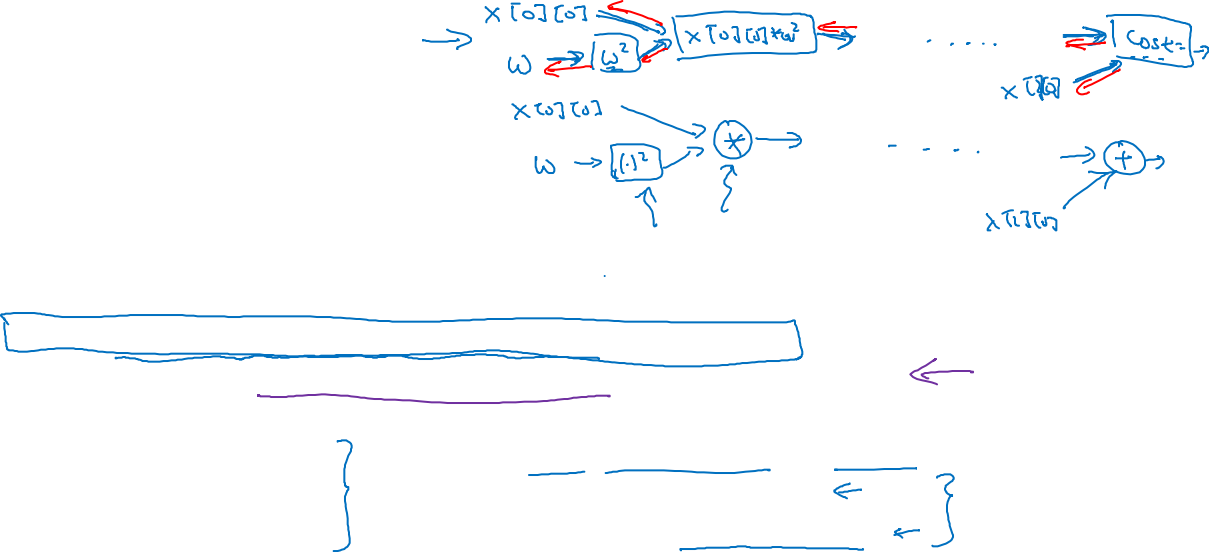 x[0][0]
w
w²
x[0][0]*w²
.....
cost=
x[0][0]
w
(.)²
*
....
+
x[1][0]